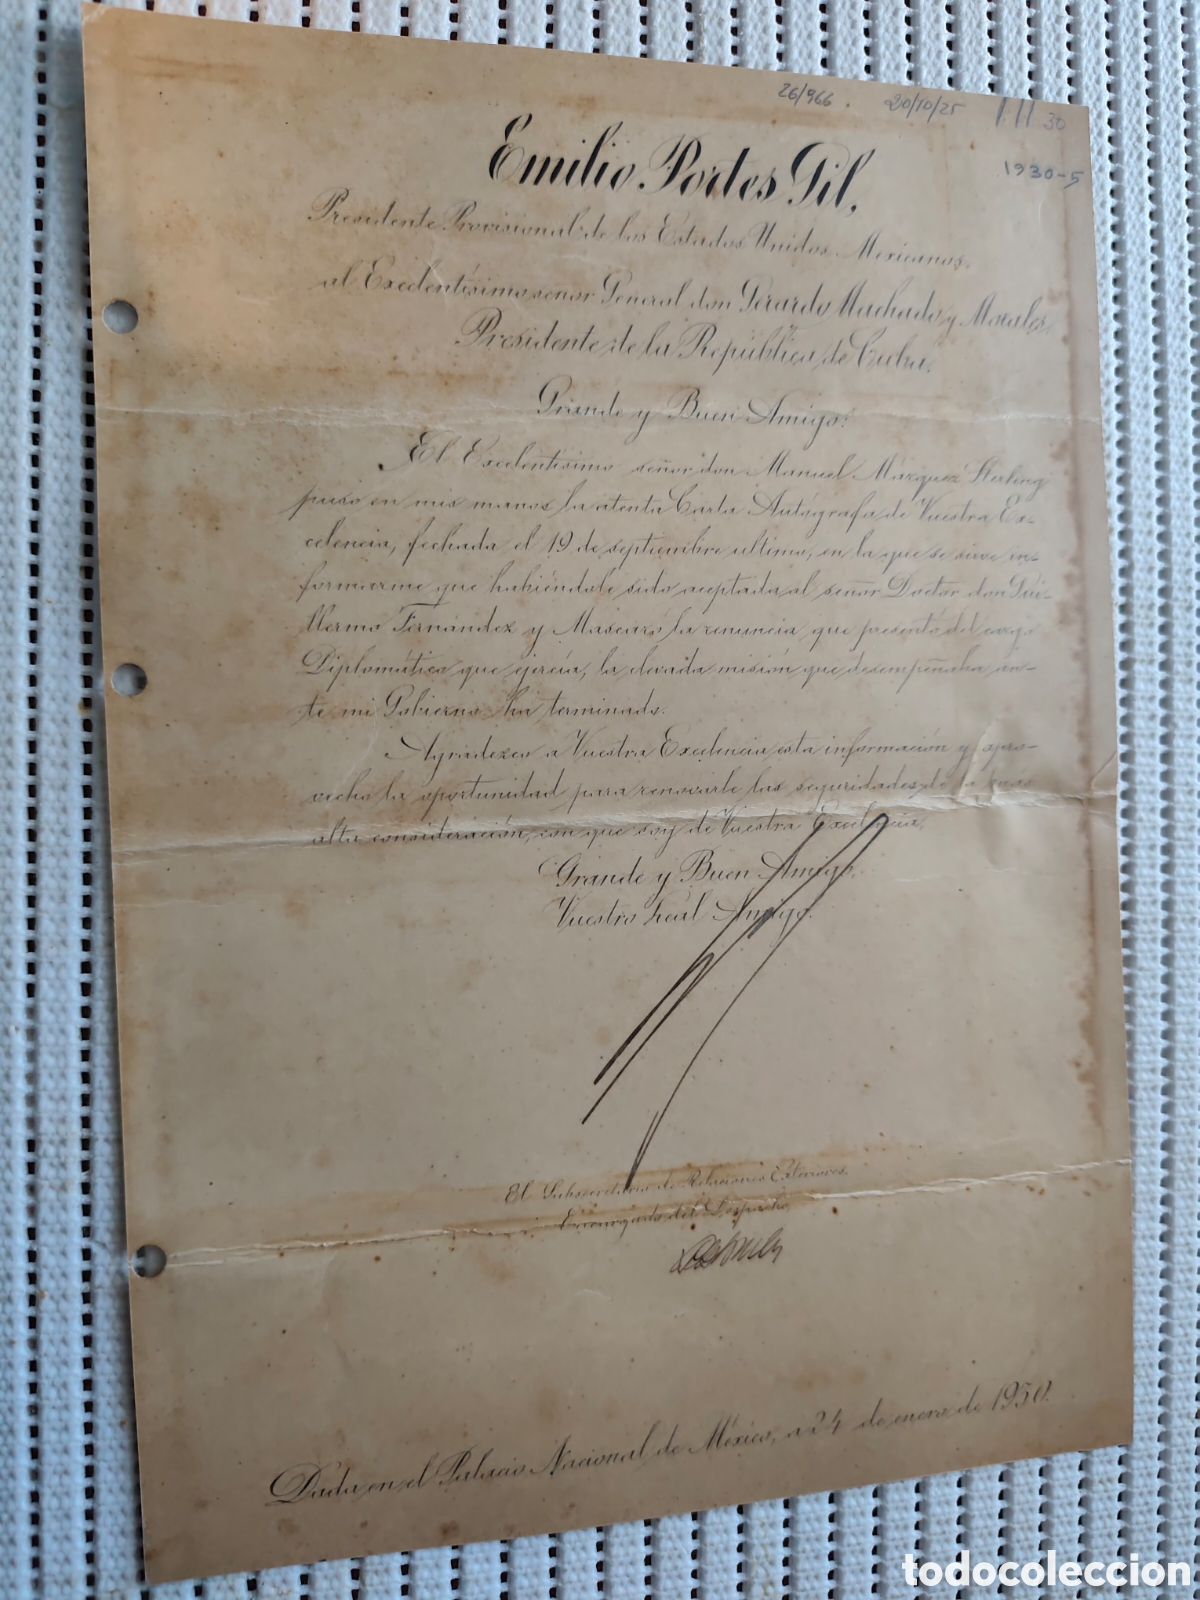 26/966. 20/10/25 30
1930-5
Emilio Portes Gil,
Presidente Provisional de los Estados Unidos Mexicanos,
al Excelentísimo señor General don Gerardo Machado y Morales,
Presidente de la República de Cuba.
Grande y Buen Amigo:
El Excelentísimo señor don Manuel Márquez Sterling
puso en mis manos la atenta Carta Autógrafa de Vuestra Ex-
celencia, fechada el 19 de septiembre último, en la que se sirve in-
formarme que habiéndole sido aceptada al señor Doctor don Gui-
llermo Fernández y Mascaró la renuncia que presentó del cargo
Diplomático que ejercía, la elevada misión que desempeñaba an-
te mi Gobierno ha terminado.
Agradezco a Vuestra Excelencia esta información y apro-
vecho la oportunidad para renovarle las seguridades de la
alta consideración, con que soy de Vuestra Excelencia,
Grande y Buen Amigo,
Vuestro Leal Amigo.
El Subsecretario de Relaciones Exteriores,
Encargado del Despacho,
Dada en el Palacio Nacional de México, a 24 de enero de 1930.
todocoleccion